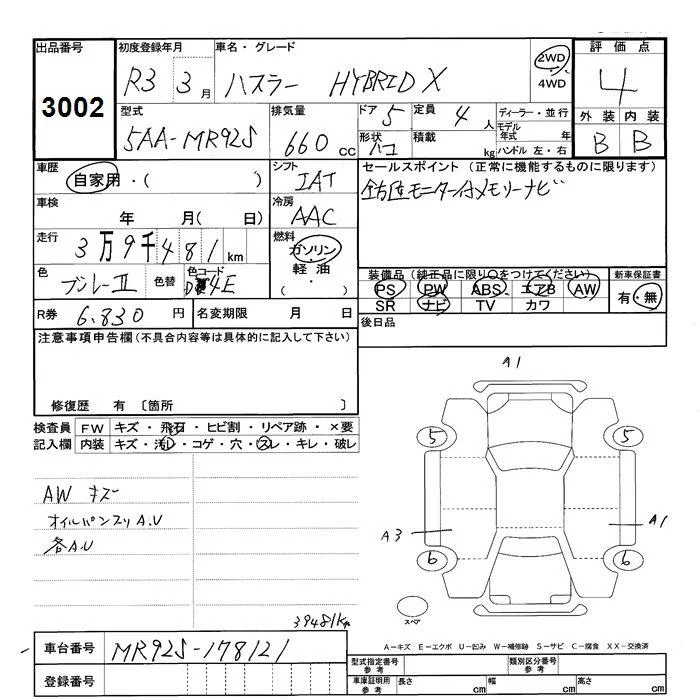 出品番号 初度登録年月 車名・グレード 評価点
3002 R3 3月 ハスラー HYBRID X 2WD 4WD 4
型式 排気量 ドア 5 定員 4人 ディーラー・並行 外装 内装
5AA-MR92S 660cc 形状 ハコ 積載 kg モデル年式 年 ハンドル 左・右 B B
車歴 自家用・( ) シフト IAT セールスポイント (正常に機能するものに限ります)
車検 年 月( 日) 冷房 AAC 全方位モニター付メモリーナビ
走行 3万9千481km 燃料 ガソリン・軽油 ( ・ )
色 ブルーⅡ 色替 色コード 4E 装備品 (純正品に限り○をつけてください) 新車保証書
PS PW ABS エアB AW 有・無
SR ナビ TV カワ
R券 6.830円 名変期限 月 日 後日品
注意事項申告欄(不具合内容等は具体的に記入して下さい)
修復歴 有 〔箇所 〕
検査員記入欄 FW キズ・飛石・ヒビ割・リペア跡・×要
内装 キズ・汚レ・コゲ・穴・スレ・キレ・破レ
AW キズ
オイルパンスリA.U
各A.U
39481km
A1
5 5
A3 A1
6 6
スペア
A-キズ E-エクボ U-凹み W-補修跡 S-サビ C-腐食 XX-交換済
車台番号 MR92S-178121
登録番号
型式指定番号 参考 類別区分番号 参考
車庫証明用 参考 長さ cm 幅 cm 高さ cm